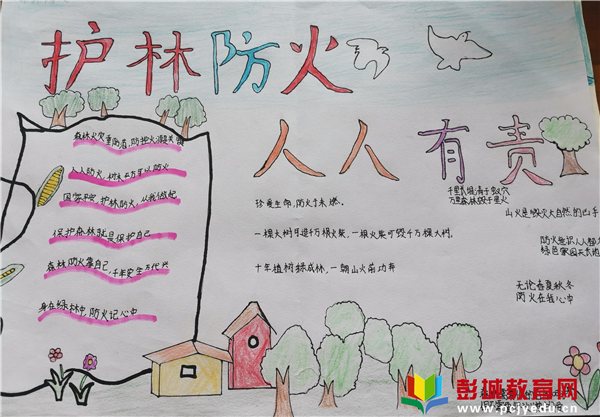 护林防火
人人有责
森林火灾重防范，防控火源是关键
人人防火，
国家平安，护林防火，从我做起
保护森林就是保护自己
森林防火靠自己，千家安生万代兴
身在绿林中，防火记心中
珍爱生命，防火于未燃。
一棵大树可造千万根火柴，一根火柴可毁千万棵大树。
十年植树栋成林，一朝山火前功弃
千里长堤溃于蚁穴
万里森林毁于星火
山火是毁灭大自然的凶手
防火意识人人
绿色家园天长地
无论春夏秋冬
防火在我心中
彭城教育网
www.pcjyedu.cn